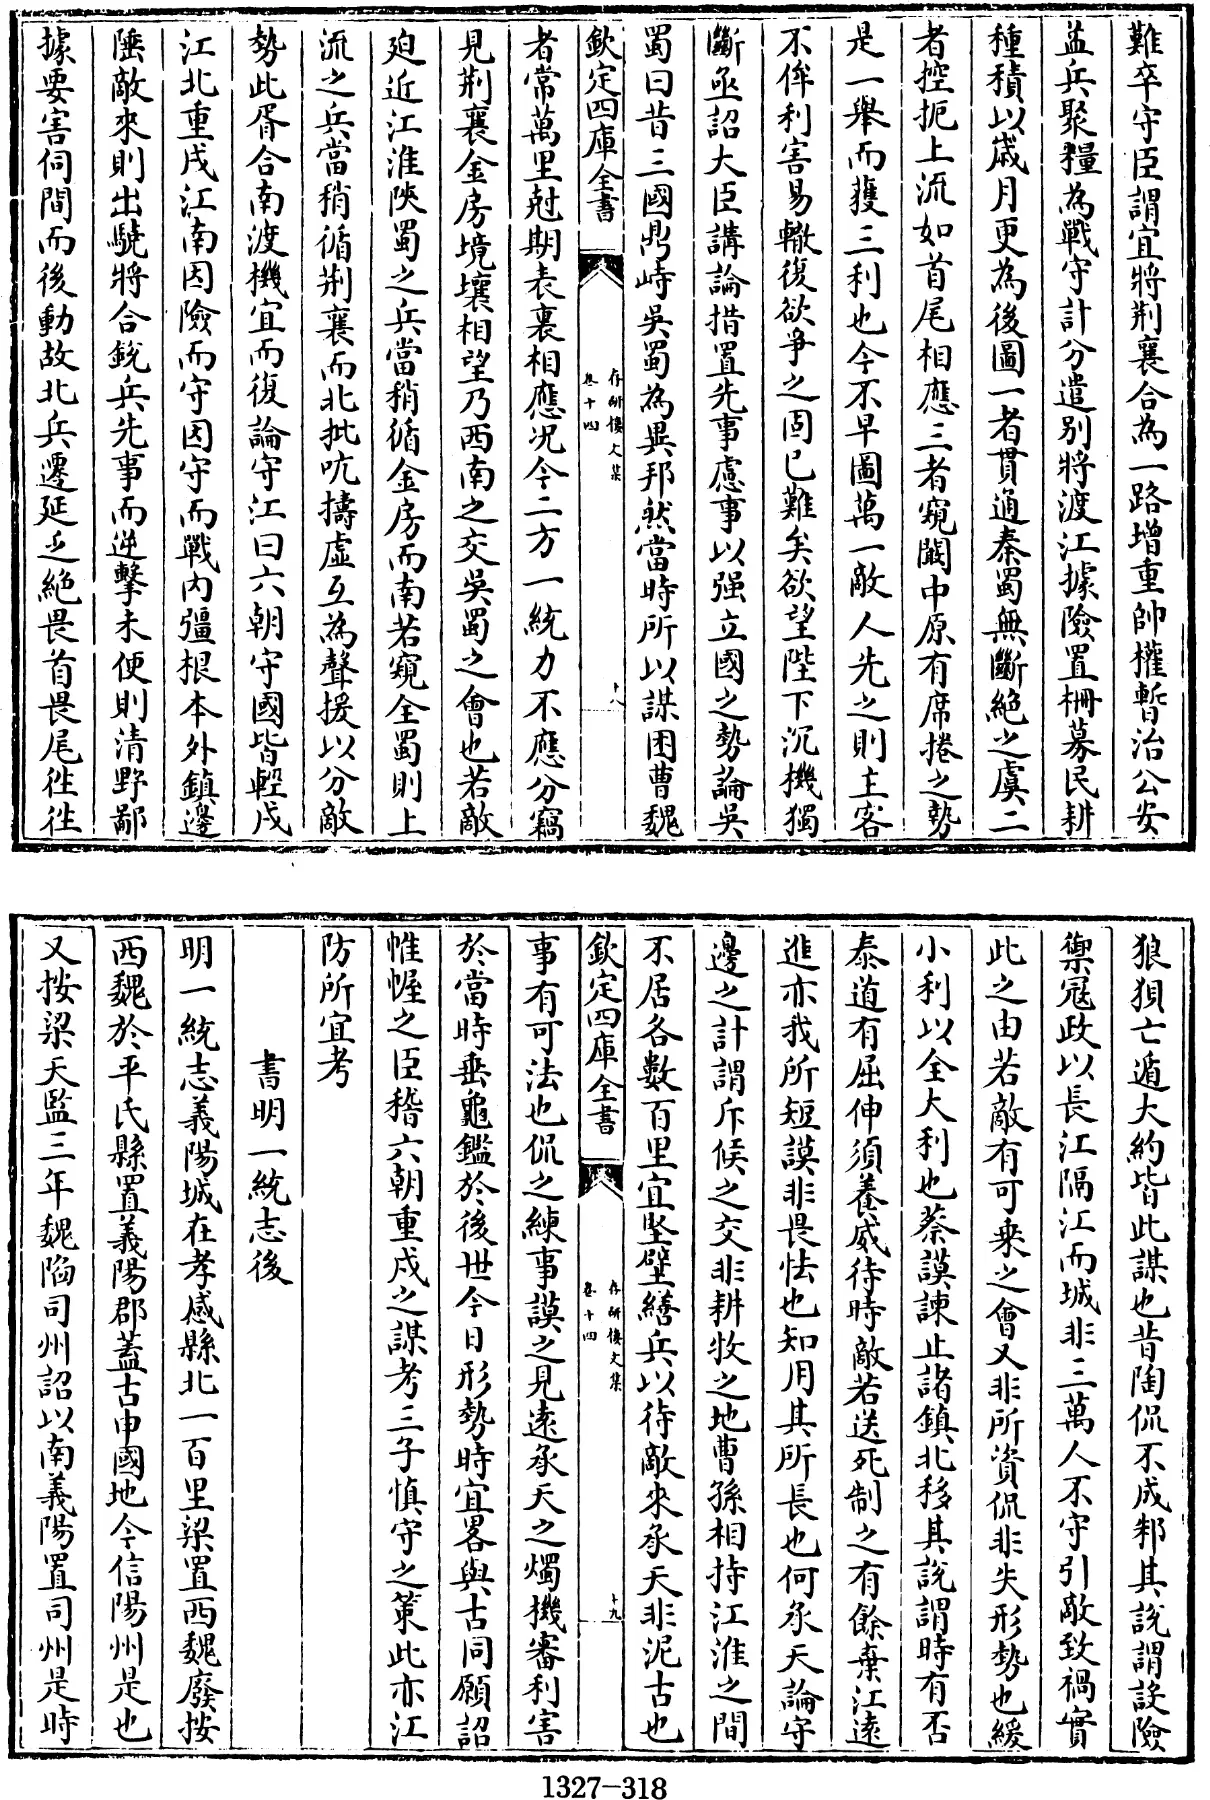 難卒守臣謂宜將荆襄合為一路增重帥權暫治公安
益兵聚糧為戰守計分遣别將渡江據險置柵募民耕
種積以嵗月更為後圖一者貫通秦蜀無斷絶之虞二
者控扼上流如首尾相應三者窺闞中原有席捲之勢
是一舉而獲三利也今不早圖萬一敵人先之則主客
不侔利害易轍復欲爭之固已難矣欲望陛下沉機獨
斷亟詔大臣講論措置先事慮事以强立國之勢論吳
蜀曰昔三國鼎峙吳蜀為異邦然當時所以謀困曹魏
欽定四庫全書
存研樓文集
卷十四
十八
者常萬里尅期表裏相應况今二方一統力不應分竊
見荆襄金房境壤相望乃西南之交吳蜀之會也若敵
廹近江淮陜蜀之兵當稍循金房而南若窺全蜀則上
流之兵當稍循荆襄而北批吭擣虚互為聲援以分敵
勢此胥合南渡機宜而復論守江曰六朝守國皆輕戍
江北重戍江南因險而守因守而戰内彊根本外鎮邊
陲敵來則出驍將合銳兵先事而逆擊未便則清野鄙
據要害伺間而後動故北兵遷延乏絶畏首畏尾徃徃
狼狽亡遁大約皆此謀也昔陶侃不成邾其說謂設險
禦冦政以長江隔江而城非三萬人不守引敵致禍實
此之由若敵有可乗之會又非所資侃非失形勢也緩
小利以全大利也蔡謨諫止諸鎮北移其說謂時有否
泰道有屈伸須養威待時敵若送死制之有餘棄江遠
進亦我所短謨非畏怯也知用其所長也何承天論守
邊之計謂斥候之交非耕牧之地曹孫相持江淮之間
不居各數百里宜堅壁繕兵以待敵來承天非泥古也
欽定四庫全書
存研樓文集
卷十四
十九
事有可法也侃之練事謨之見遠承天之燭機審利害
於當時垂龜鑑於後世今日形勢時宜畧與古同願詔
帷幄之臣稽六朝重戍之謀考三子慎守之策此亦江
防所宜考
書明一統志後
明一統志義陽城在孝感縣北一百里梁置西魏廢按
西魏於平氏縣置義陽郡蓋古申國地今信陽州是也
又按梁天監三年魏陷司州詔以南義陽置司州是時
1327-318